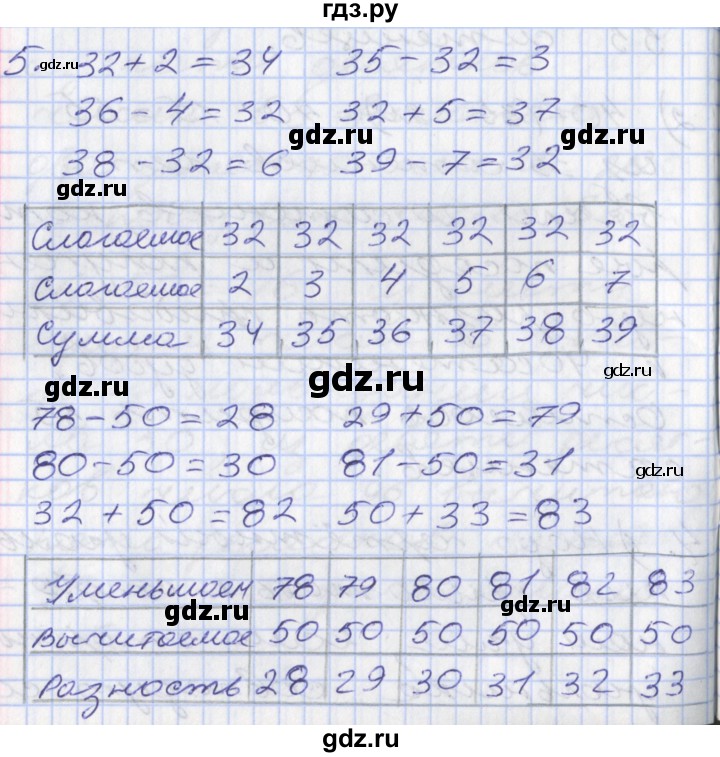 гдз.ру
5. 32+2=34 35-32=3
gdz.ru
36-4=32 32+5=37
gdz.ru gdz.ru
38-32=6 39-7=32
gdz.ru gdz.ru
Слагаемое 32 32 32 32 32 32
Слагаемое 2 3 4 5 6 7
Сумма 34 35 36 37 38 39
gdz.ru gdz.ru gdz.ru
78-50=28 29+50=79
80-50=30 81-50=31
gdz.ru
32+50=82 50+33=83
Уменьшаем 78 79 80 81 82 83
gdz.ru gdz.ru
Вычитаемое 50 50 50 50 50 50
Разность 28 29 30 31 32 33
gdz.ru gdz.ru
gdz.ru